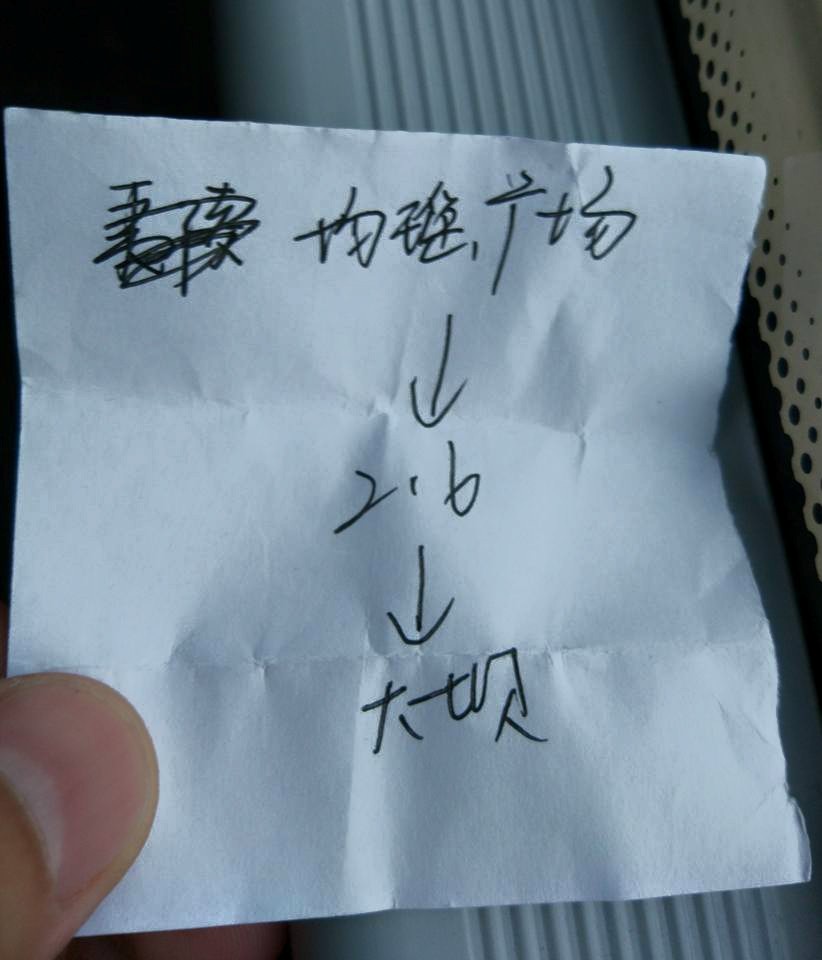 均瑶广场
↓
2.6
↓
大坝